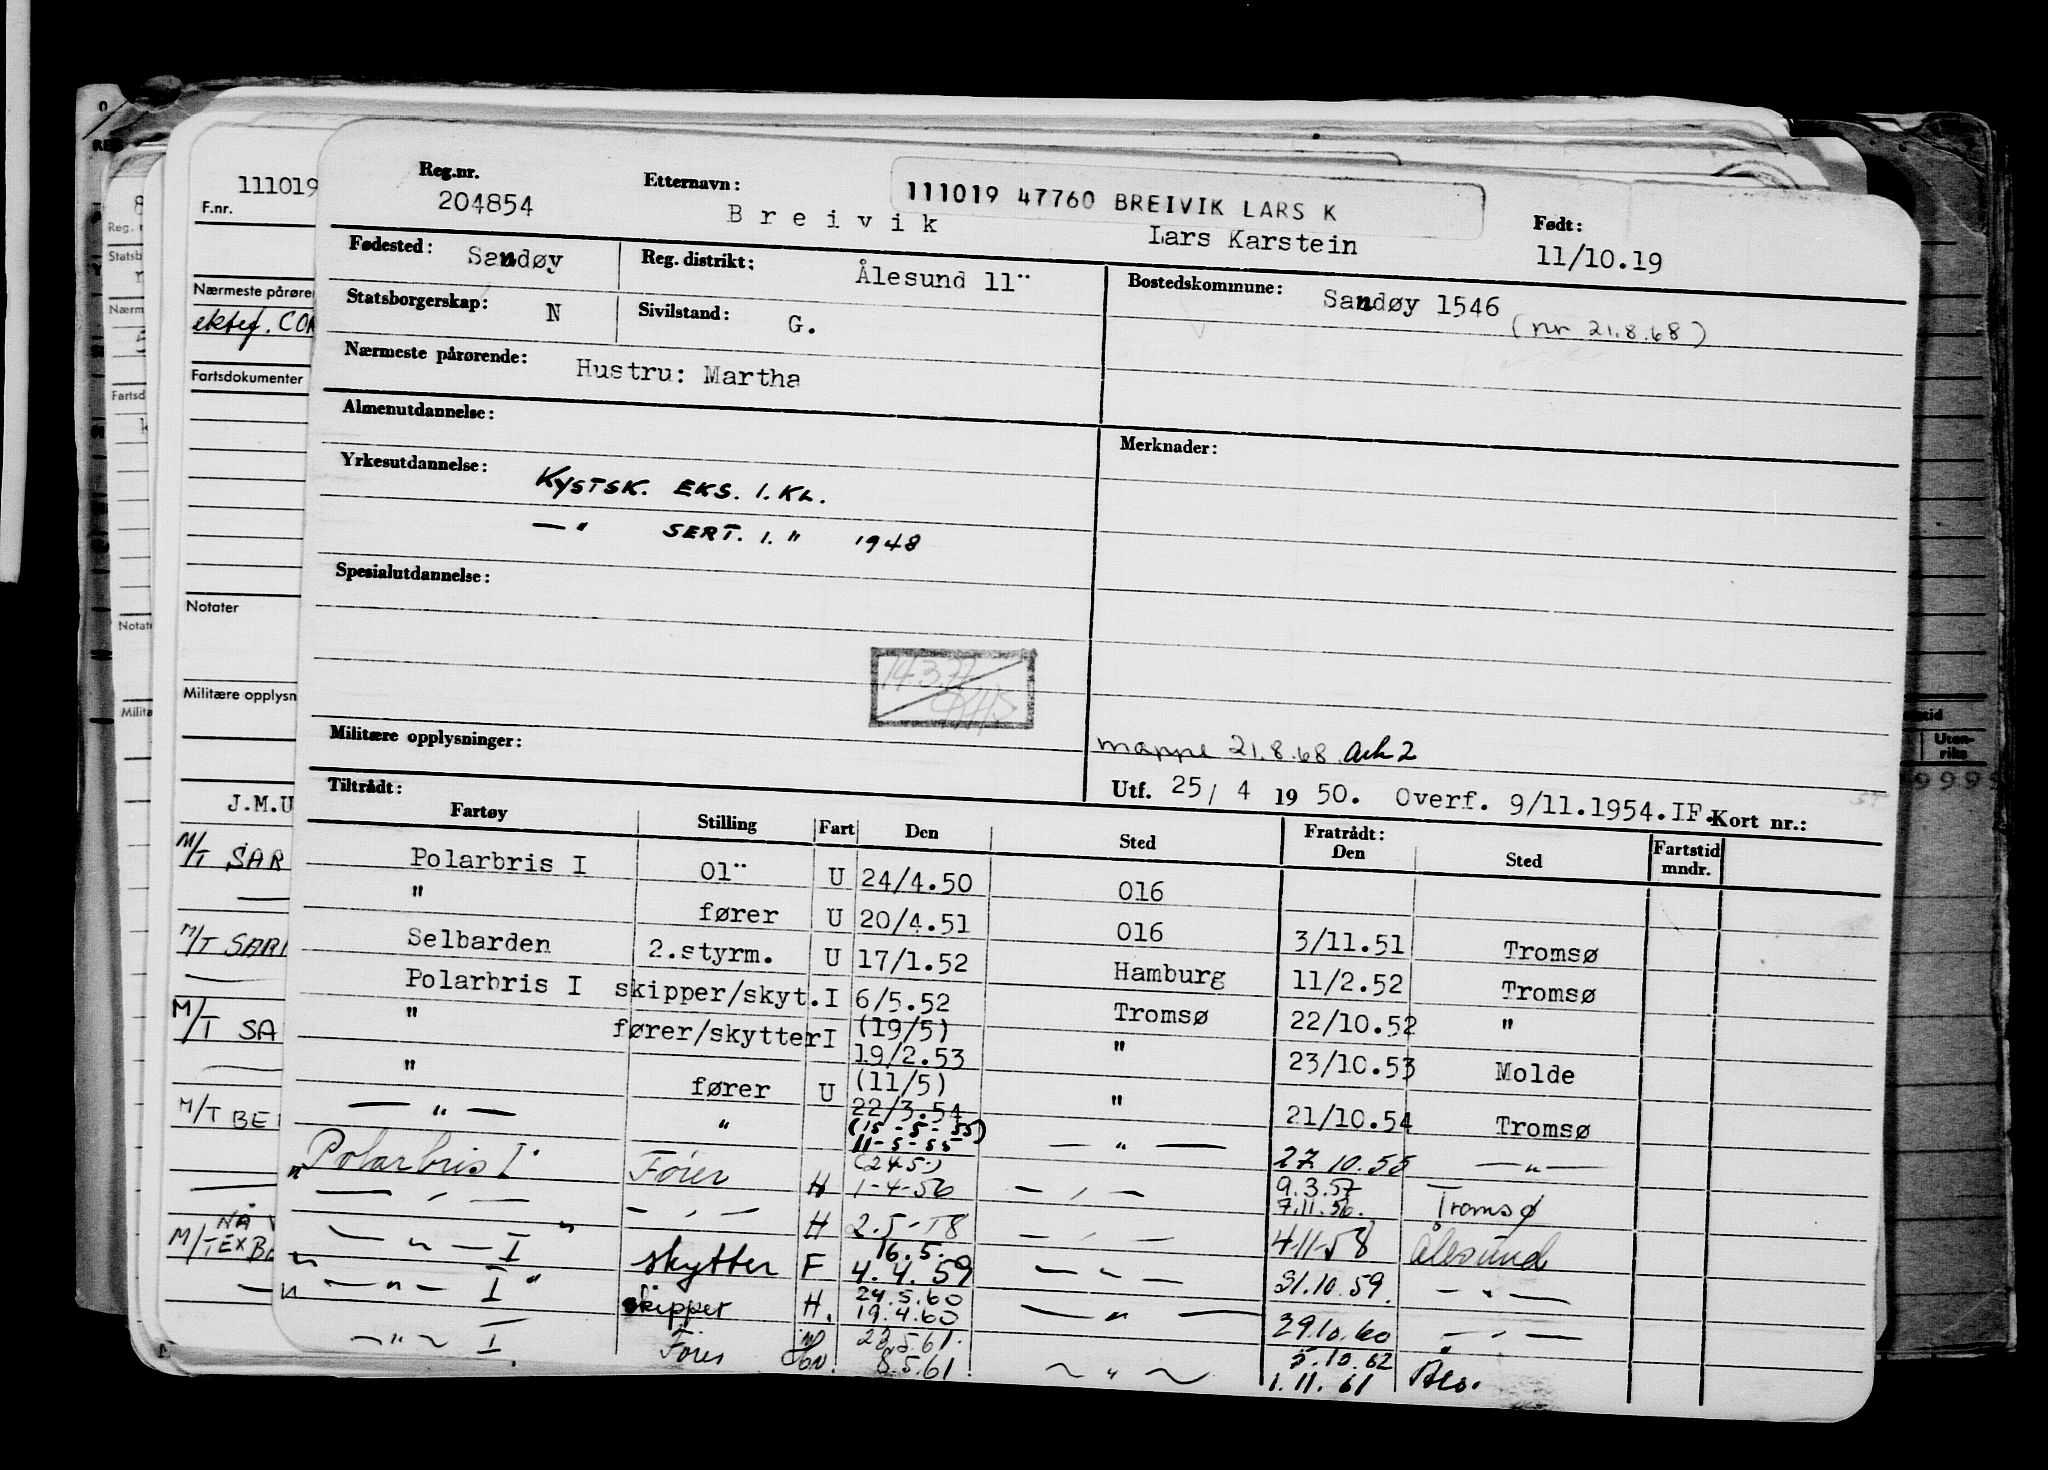 111019 47760 BREIVIK LARS K
Reg.nr. 204854
Etternavn: Breivik
Lars Karstein
Født: 11/10.19
Fødested: Sandøy
Reg. distrikt: Ålesund 11¨
Bostedskommune: Sandøy 1546
(nr 21.8.68)
Statsborgerskap: N
Sivilstand: G.
Nærmeste pårørende: Hustru: Martha
Almenutdannelse:
Merknader:
Yrkesutdannelse: KYSTSK. EKS. 1. KL.
—"  SERT. 1. "  1948
Spesialutdannelse:
Militære opplysninger:
mappe 21.8.68 Ark 2
Utf. 25/ 4 1950. Overf. 9/11.1954.IF. Kort nr.:
Tiltrådt: Fartøy Stilling Fart Den Sted Fratrådt: Den Sted Fartstid mndr.
Polarbris I 01¨ U 24/4.50 016
" fører U 20/4.51 016 3/11.51 Tromsø
Selbarden 2.styrm. U 17/1.52 Hamburg 11/2.52 Tromsø
Polarbris I skipper/skyt. I 6/5.52 Tromsø 22/10.52 "
(19/5)
" fører/skytter I 19/2.53 " 23/10.53 Molde
(11/5)
" fører U 22/3.54 " 21/10.54 Tromsø
(15-5-55)
—"— " 11-5-55 —"— 27.10.55 —"—
(24.5.)
"Polarbris I" Fører H 1-4-56 —"— 9.3.57
7.11.56. Tromsø
—"— —"— H 2.5-58 —"— 4-11-58 Ålesund
16.5.
"—"— I" skytter F 4.4.59 —"— 31.10.59. —"—
24.5.60
"—"— I" skipper H. 19.4.60 —"— 29.10.60 —"—
23.5.61. 5.10.62
—"— I. Fører 8.5.61 —"— 1.11.61 Åls.
111019
F.nr.
Nærmeste pårøre
ektef. CON
Fartsdokumenter
Notater
Militære opplysn
J.M.U
M/T SAR
M/T SARI
M/T SA
M/T BE
NÅ
M/T TEXB
Reg.
Statsb
Nærm
Fartsd
Notate
Milita
Uten-
riks